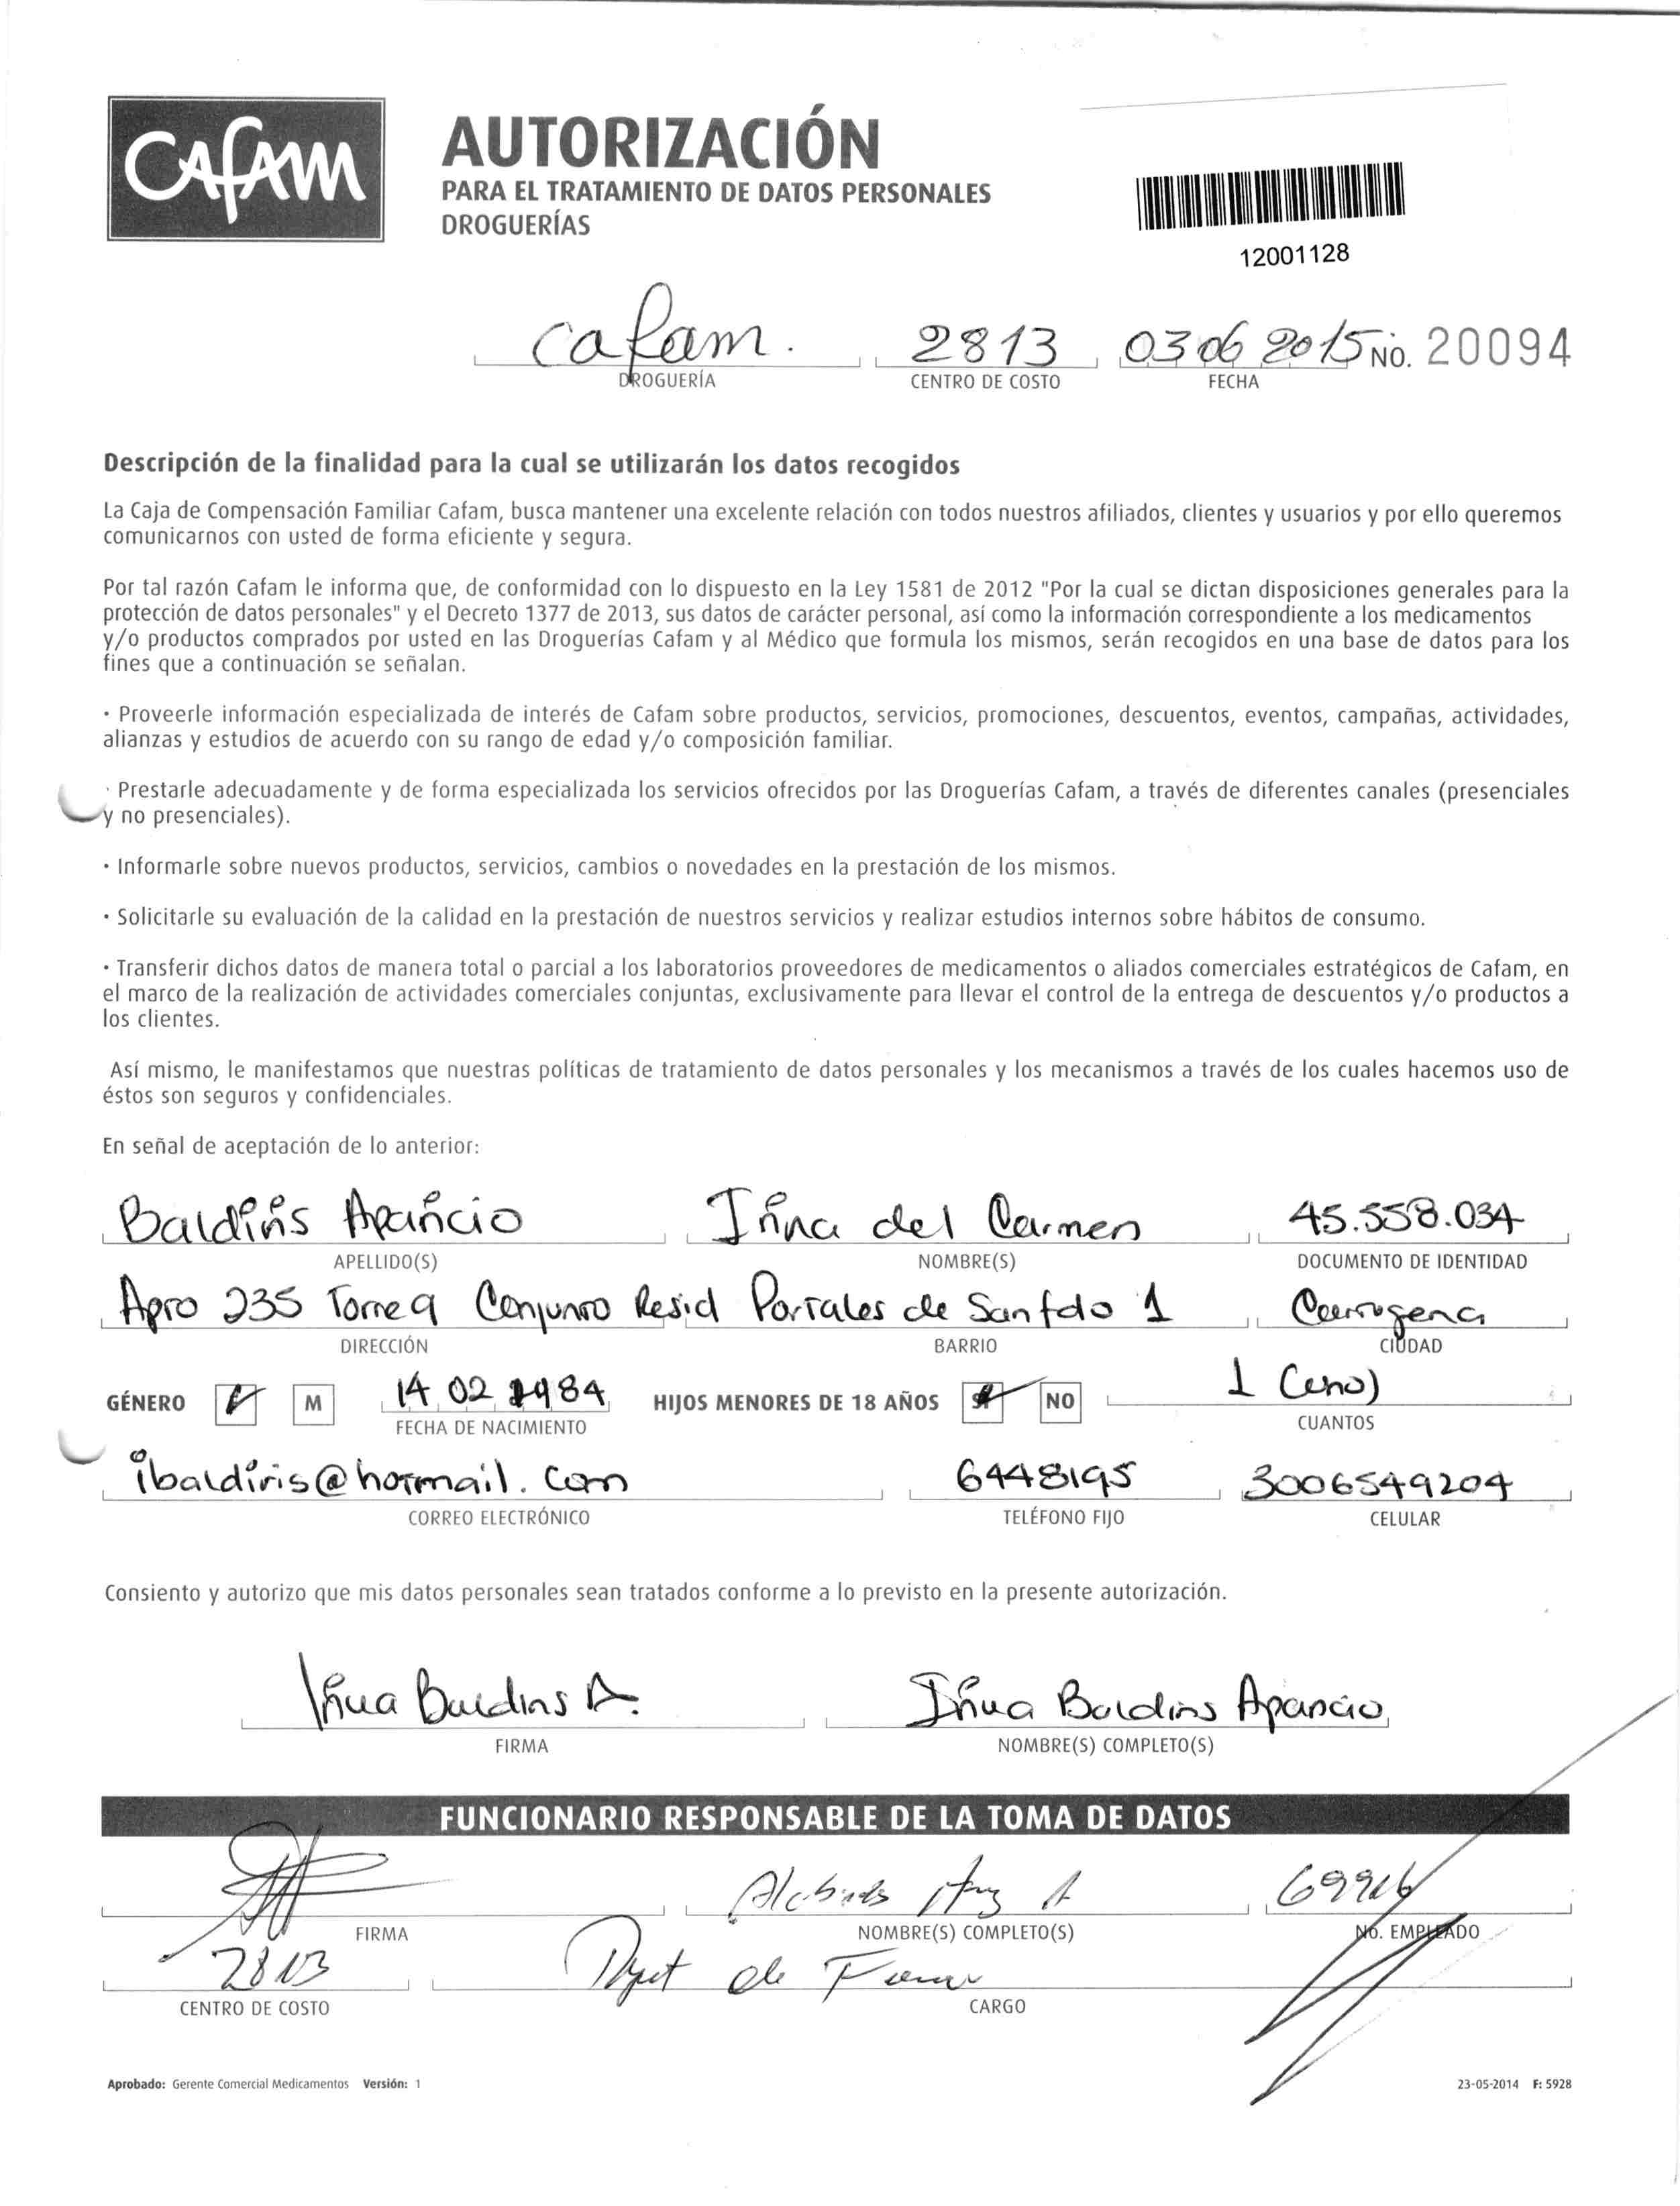 CAFAM
AUTORIZACIÓN
PARA EL TRATAMIENTO DE DATOS PERSONALES
DROGUERÍAS
12001128
cafam. 2813 03 06 2015 No. 20094
DROGUERÍA CENTRO DE COSTO FECHA
Descripción de la finalidad para la cual se utilizarán los datos recogidos
La Caja de Compensación Familiar Cafam, busca mantener una excelente relación con todos nuestros afiliados, clientes y usuarios y por ello queremos
comunicarnos con usted de forma eficiente y segura.
Por tal razón Cafam le informa que, de conformidad con lo dispuesto en la Ley 1581 de 2012 "Por la cual se dictan disposiciones generales para la
protección de datos personales" y el Decreto 1377 de 2013, sus datos de carácter personal, así como la información correspondiente a los medicamentos
y/o productos comprados por usted en las Droguerías Cafam y al Médico que formula los mismos, serán recogidos en una base de datos para los
fines que a continuación se señalan.
· Proveerle información especializada de interés de Cafam sobre productos, servicios, promociones, descuentos, eventos, campañas, actividades,
alianzas y estudios de acuerdo con su rango de edad y/o composición familiar.
· Prestarle adecuadamente y de forma especializada los servicios ofrecidos por las Droguerías Cafam, a través de diferentes canales (presenciales
y no presenciales).
· Informarle sobre nuevos productos, servicios, cambios o novedades en la prestación de los mismos.
· Solicitarle su evaluación de la calidad en la prestación de nuestros servicios y realizar estudios internos sobre hábitos de consumo.
· Transferir dichos datos de manera total o parcial a los laboratorios proveedores de medicamentos o aliados comerciales estratégicos de Cafam, en
el marco de la realización de actividades comerciales conjuntas, exclusivamente para llevar el control de la entrega de descuentos y/o productos a
los clientes.
Así mismo, le manifestamos que nuestras políticas de tratamiento de datos personales y los mecanismos a través de los cuales hacemos uso de
éstos son seguros y confidenciales.
En señal de aceptación de lo anterior:
Baldiris Aparicio Irina del Carmen 45.558.034
APELLIDO(S) NOMBRE(S) DOCUMENTO DE IDENTIDAD
Apto 235 Torre 9 Conjunto Resid Portales de San fdo 1 Cartagena
DIRECCIÓN BARRIO CIUDAD
GÉNERO M 14 02 1984 HIJOS MENORES DE 18 AÑOS SI NO 1 (uno)
FECHA DE NACIMIENTO CUANTOS
ibaldiris@hotmail.com 6448195 3006549204
CORREO ELECTRÓNICO TELÉFONO FIJO CELULAR
Consiento y autorizo que mis datos personales sean tratados conforme a lo previsto en la presente autorización.
Irina Baldiris A. Irina Baldiris Aparicio
FIRMA NOMBRE(S) COMPLETO(S)
FUNCIONARIO RESPONSABLE DE LA TOMA DE DATOS
FIRMA NOMBRE(S) COMPLETO(S) No. EMPLEADO
2813 de
CENTRO DE COSTO CARGO
Aprobado: Gerente Comercial Medicamentos Versión: 1 23-05-2014 F: 5928